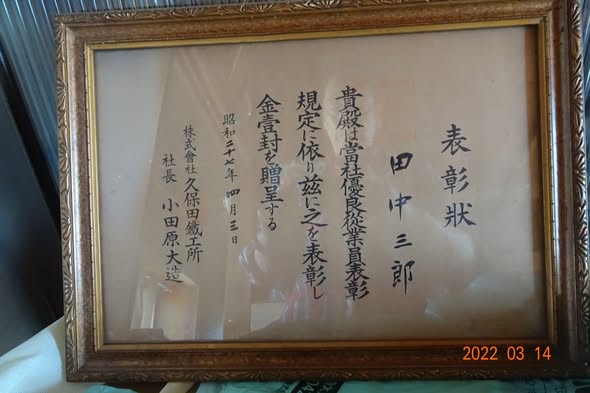 表彰狀
田中三郎
貴殿は當社優良從業員表彰
規定に依り茲に之を表彰し
金壹封を贈呈する
昭和二十七年四月三日
株式會社久保田鐵工所
社長 小田原大造
2022 03 14